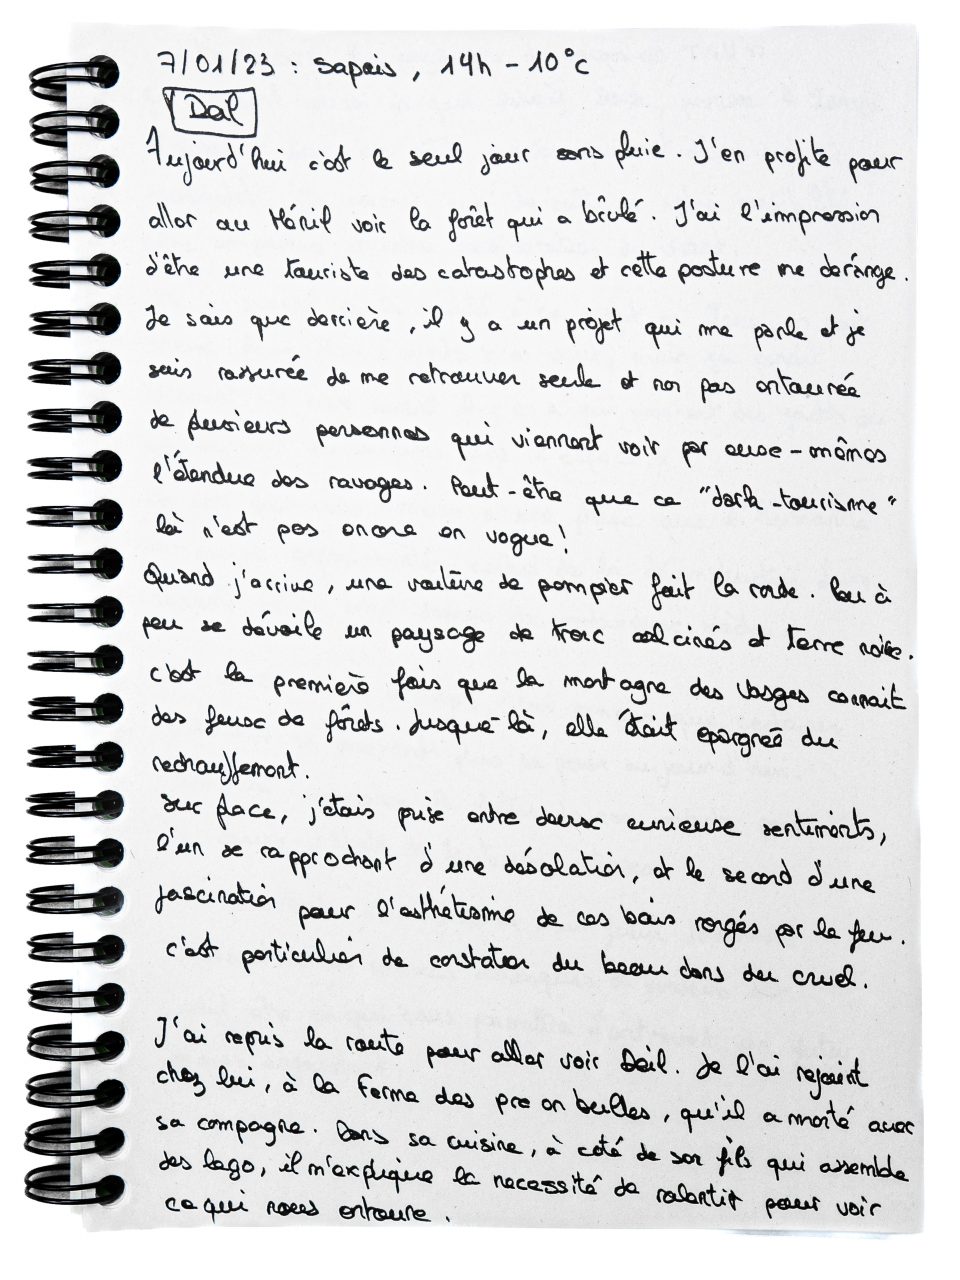 7/01/23 : Sapois, 14h - 10°C
Deil
Aujourd'hui c'est le seul jour sans pluie. J'en profite pour
aller au Ménil voir la forêt qui a brûlé. J'ai l'impression
d'être une touriste des catastrophes et cette posture me dérange.
Je sais que derrière, il y a un projet qui me parle et je
suis rassurée de me retrouver seule et non pas entourée
de plusieurs personnes qui viennent voir par euxe-mêmes
l'étendue des ravages. Peut-être que ce "dark-tourisme"
là n'est pas encore en vogue !
Quand j'arrive, une voiture de pompier fait la ronde. Peu à
peu se dévoile un paysage de tronc calcinés et terre noire.
C'est la première fois que la montagne des Vosges connait
des feux de fôrets. Jusque-là, elle était épargnée du
rechauffement.
Sur place, j'étais prise entre deux curieuse sentiments,
l'un se rapprochant d'une désolation, et le second d'une
fascination pour l'esthétisme de ces bois rongés par le feu.
C'est particulier de constater du beau dans du cruel.
J'ai repris la route pour aller voir Deil. Je l'ai rejoint
chez lui, à la Ferme des pre en bulles, qu'il a monté avec
sa compagne. Dans sa cuisine, à coté de son fils qui assemble
des lego, il m'explique la necessité de ralentir pour voir
ce qui nous entoure.